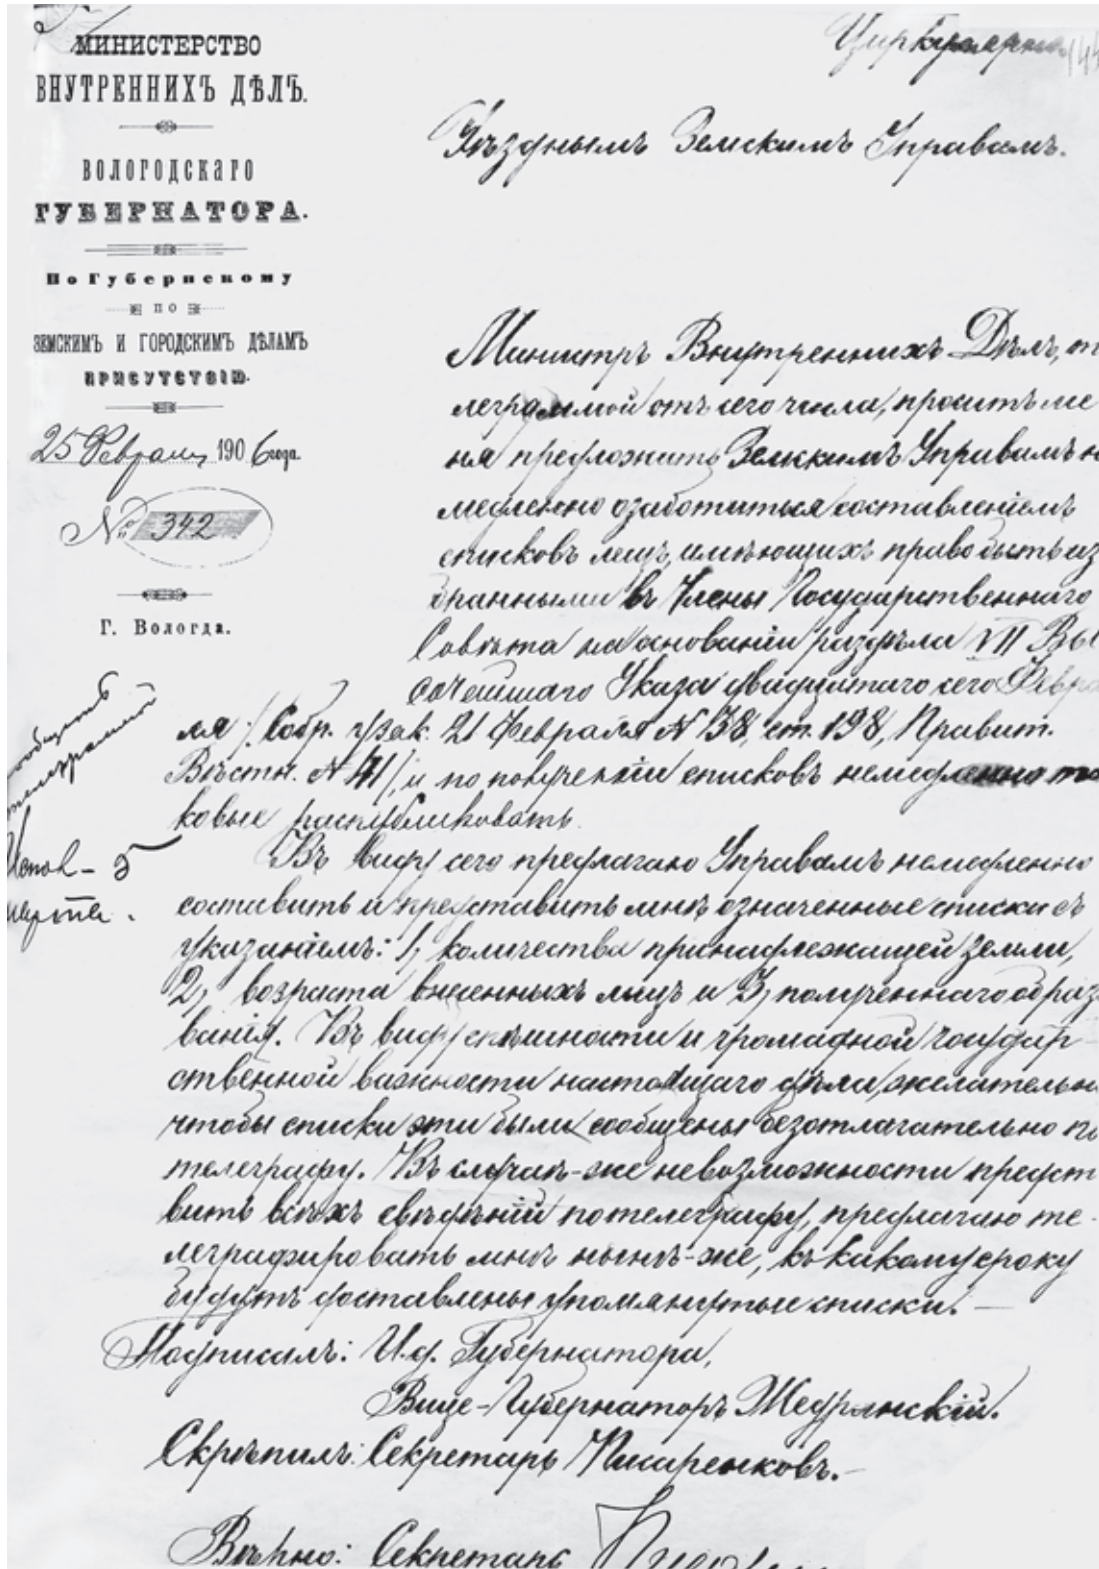 МИНИСТЕРСТВО
ВНУТРЕННИХЪ ДѢЛЪ.
ВОЛОГОДСКАГО
ГУБЕРНАТОРА.
По Губернскому
ПО
ЗЕМСКИМЪ И ГОРОДСКИМЪ ДѢЛАМЪ
ПРИСУТСТВІЮ.
25 Февраля 1906 года.
№ 342
Г. Вологда.
сообщить
телеграммой
Испол - 5
марта.
Циркулярно.
Уѣзднымъ Земскимъ Управамъ.
Министръ Внутреннихъ Дѣлъ, т
леграммой отъ сего числа, проситъ ме
ня предложить Земскимъ Управамъ н
медленно озаботиться составленіемъ
списковъ лицъ, имѣющихъ право быть из
бранными въ Члены Государственнаго
Совѣта на основаніи раздѣла VII Вы
сочайшаго Указа двадцатаго сего Февра
ля /Собр. узак. 21 Февраля № 38, ст. 198, Правит.
Вѣстн. № 41/, и по полученіи списковъ немедленно та
ковые распубликовать.
Въ виду сего предлагаю Управамъ немедленно
составить и представить мнѣ означенные списки съ
указаніемъ: 1, количества принадлежащей земли,
2, возраста внесенныхъ лицъ и 3, полученнаго образ
ванія. Въ виду спѣшности и громадной государ
ственной важности настоящаго дѣла, желательн
чтобы списки эти были сообщены безотлагательно по
телеграфу. Въ случаѣ-же невозможности предст
вить всѣхъ свѣдѣній по телеграфу, предлагаю те-
леграфировать мнѣ нынѣ-же, къ какому сроку
будутъ доставлены упомянутые списки. —
Подписалъ: И.д. Губернатора,
Вице-Губернаторъ Жедринскій.
Скрѣпилъ: Секретарь Писаренковъ.-
Вѣрно: Секретарь